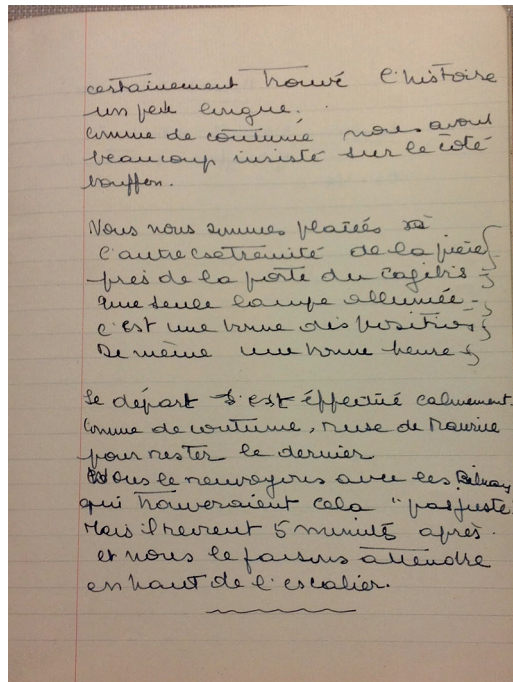 certainement trouvé l'histoire
un peu longue.
Comme de coutume nous avons
beaucoup insisté sur le côté
bouffon.
Nous nous sommes placées à
l'autre extrémité de la pièce
près de la porte du cagibis
Une seule lampe allumée
C'est une bonne disposition
De même une bonne heure
Le départ s'est effectué calmement.
Comme de coutume, ruse de Maurice
pour rester le dernier
Nous le renvoyons avec les
qui trouveraient cela "pas juste
Mais il revient 5 minutes après.
et nous le faisons attendre
en haut de l'escalier.